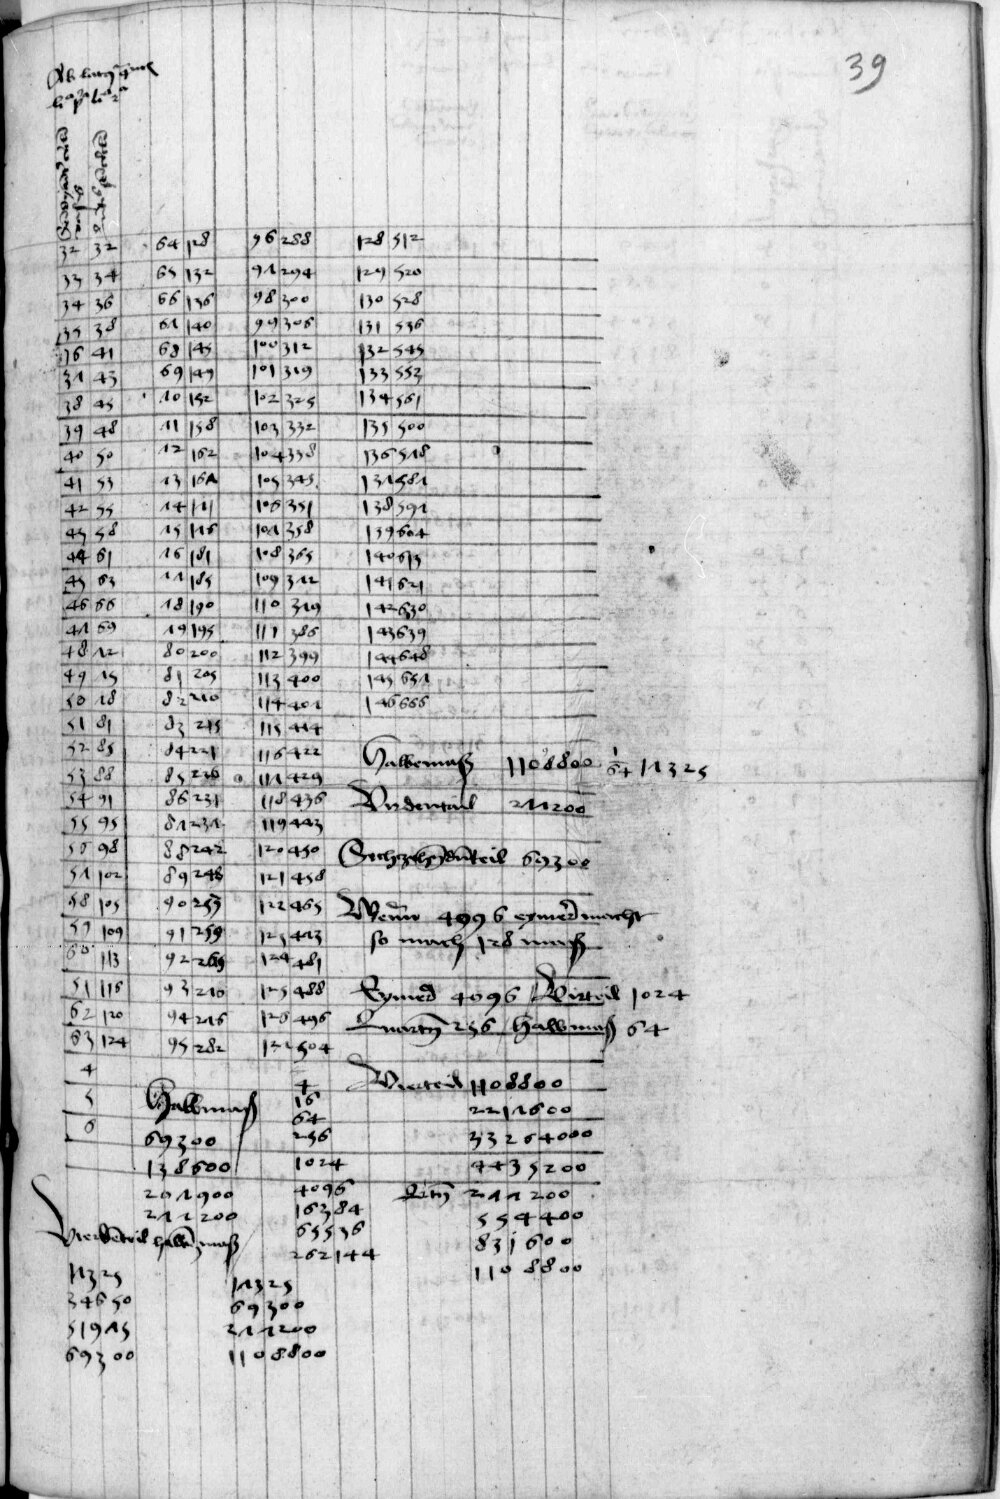 39
32 32 64 128 96 288 128 512
33 34 65 132 97 294 129 520
34 36 66 136 98 300 130 528
35 38 67 140 99 306 131 536
36 41 68 145 100 312 132 545
37 43 69 149 101 319 133 553
38 45 70 152 102 325 134 561
39 48 71 158 103 332 135 500
40 50 72 162 104 338 136 578
41 53 73 167 105 345 137 587
42 55 74 171 106 351 138 597
43 58 75 176 107 358 139 604
44 61 76 181 108 365 140 613
45 63 77 185 109 372 141 621
46 66 78 190 110 379 142 630
47 69 79 195 111 386 143 639
48 72 80 200 112 399 144 648
49 75 81 205 113 400 145 657
50 78 82 210 114 407 146 666
51 81 83 215 115 414
52 85 84 221 116 422
Halbemaß 1108800 17325
53 88 85 226 117 429
54 91 86 231 118 436
277200
55 95 87 237 119 443
56 98 88 242 120 450
Sechzehendteil 69300
57 102 89 248 121 458
58 105 90 253 122 465
Wenn 4096 eymer macht
59 109 91 259 123 473
so mach 128 maß
60 113 92 265 124 481
51 116 93 270 125 488
Eymer 4096 Virteil 1024
62 120 94 276 126 496
Quart 256 halbmaß 64
63 124 95 282 127 504
4
Vierteil 1108800
5 Halbmaß 4
16 2217600
6 64
69300 256 33264000
138600 1024 4435200
207900 4096 277200
277200 16384 554400
Vierdeteil halbmaß 65536 831600
262144 1108800
17325 17325
34650 69300
51975 277200
69300 1108800